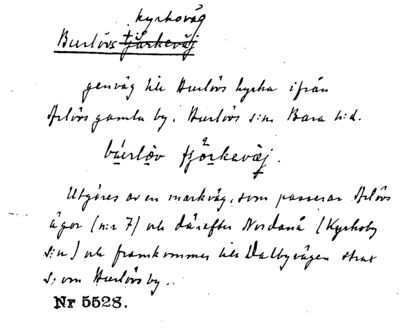 kyrkoväg
Burlövs tjörkeväj
genväg till Burlövs kyrka ifrån
Arlövs gamla by. Burlövs s:n Bara h:d.
búrlöv tjörkeväj.
Utgöres av en markväg, som passerar Arlövs
ägor (n:r 7) och därefter Nordanå (Kyrkoby
s:n) och framkommer till Dalbyvägen strax
s. om Burlövs by.
Nr 5528.